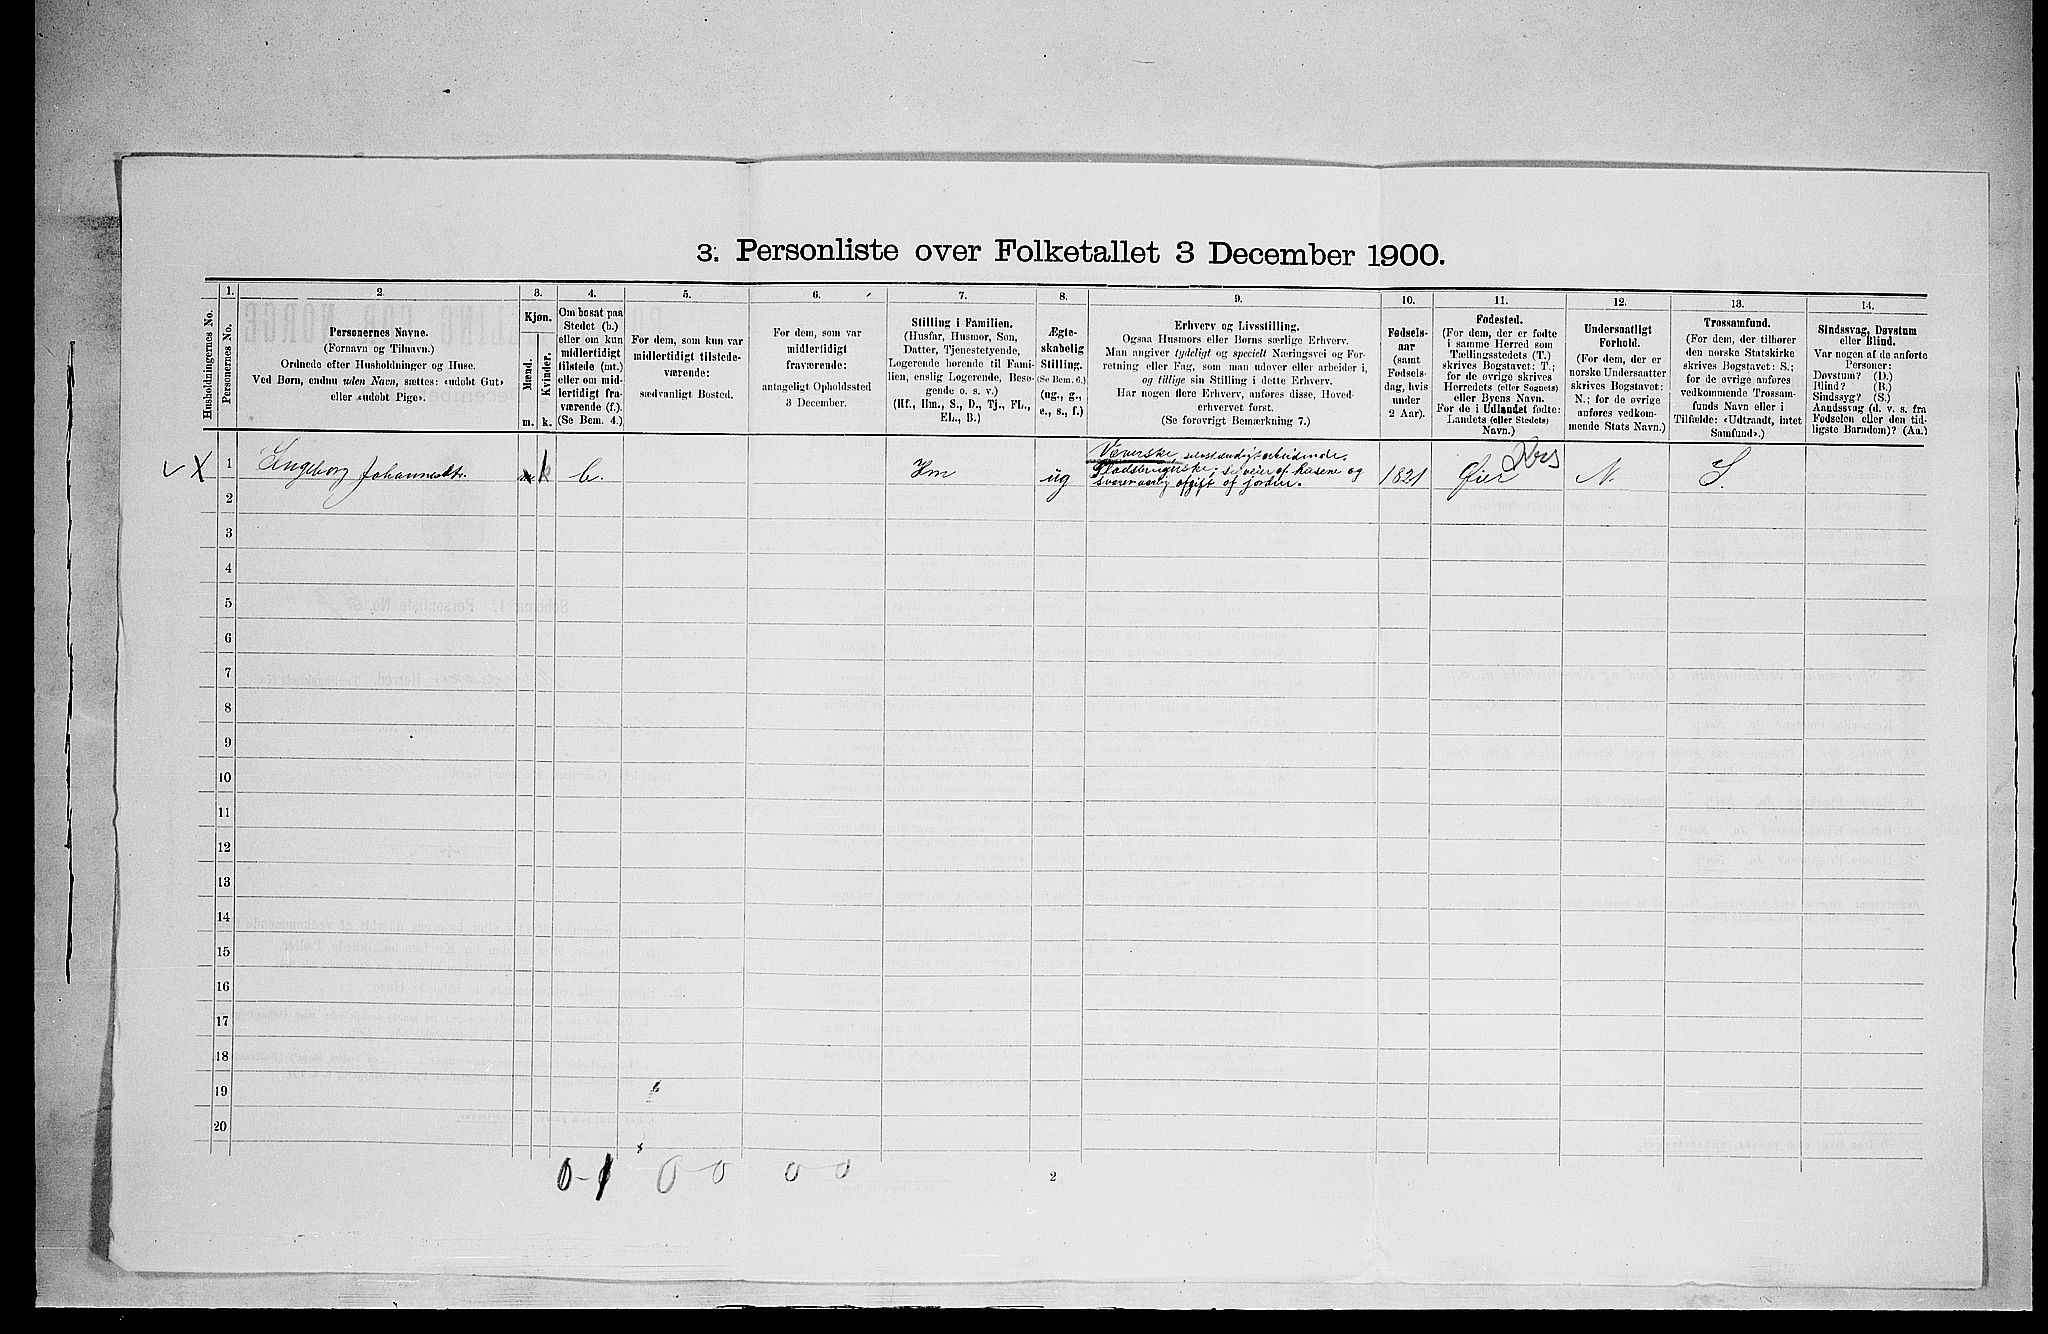 3. Personliste over Folketallet 3 December 1900.
Husholdningernes No.
1.
Personernes No.
2.
Personernes Navne.
(Fornavn og Tilnavn.)
Ordnede efter Husholdninger og Huse.
Ved Børn, endnu uden Navn, sættes: «udøbt Gut»
eller «udøbt Pige».
3.
Kjøn.
Mænd.
Kvinder.
m.
k.
4.
Om bosat paa
Stedet (b.)
eller om kun
midlertidigt
tilstede (mt.)
eller om mid-
lertidigt fra-
værende (f.).
(Se Bem. 4.)
5.
For dem, som kun var
midlertidigt tilstede-
værende:
sædvanligt Bosted.
6.
For dem, som var
midlertidigt
fraværende:
antageligt Opholdssted
3 December.
7.
Stilling i Familien.
(Husfar, Husmor, Søn,
Datter, Tjenestetyende,
Logerende hørende til Fami-
lien, enslig Logerende, Besø-
gende o. s. v.)
(Hf., Hm., S., D., Tj., FL.,
EL., B.)
8.
Ægte-
skabelig
Stilling.
(Se Bem. 6.)
(ug., g.,
e., s., f.)
9.
Erhverv og Livsstilling.
Ogsaa Husmors eller Børns særlige Erhverv.
Man angiver tydeligt og specielt Næringsvei og For-
retning eller Fag, som man udover eller arbeider i,
og tillige sin Stilling i dette Erhverv.
Har nogen flere Erhverv, anføres disse, Hoved-
erhvervet først.
(Se forøvrigt Bemærkning 7.)
10.
Fødsels-
aar
(samt
Fødsels-
dag, hvis
under
2 Aar).
11.
Fødested.
(For dem, der er fødte
i samme Herred som
Tællingsstedets (T.)
skrives Bogstavet: T.;
for de øvrige skrives
Herredets (eller Sognets)
eller Byens Navn.
For de i Udlandet fødte:
Landets (eller Stedets)
Navn.)
12.
Undersaatligt
Forhold.
(For dem, der er
norske Undersaatter
skrives Bogstavet:
N.; for de øvrige
anføres vedkom-
mende Stats Navn.)
13.
Trossamfund.
(For dem, der tilhører
den norske Statskirke
skrives Bogstavet: S.;
for de øvrige anføres
vedkommende Trossam-
funds Navn eller i
Tilfælde: «Udtraadt, intet
Samfund».)
14.
Sindssvag, Døvstum
eller Blind.
Var nogen af de anførte
Personer:
Døvstum? (D.)
Blind? (B.)
Sindssyg? (S.)
Aandssvag (d. v. s. fra
Fødselen eller den tid-
ligste Barndom)? (Aa.)
X 1 Ingeborg Johannesdtr. k b. Hm ug Væverske selvstændigt arbeidende. 1821 Øier N. S.
Pladsbrugerske; selveier af husene og
svarer aarlig afgift af jorden.
2
3
4
5
6
7
8
9
10
11
12
13
14
15
16
17
18
19
20
0-1 0-0 0 0
2